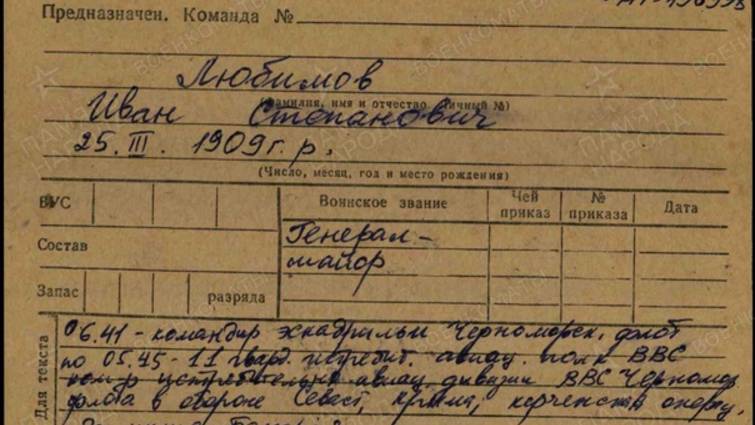 Предназначен. Команда №
Любимов
(фамилия, имя и отчество, личный №)
Иван Степанович
25. III. 1909 г. р.
(Число, месяц, год и место рождения)
ВУС
Воинское звание
Чей приказ
№ приказа
Дата
Состав
Генерал-
майор
Запас
разряда
Для текста
06.41 - командир эскадрильи Черноморск. флот
по 05.45 - 11 гвард. истребит. авиац. полк ВВС
ком-р истребительн авиац. дивизии ВВС Черномор.
флота в обороне Севаст, Крыма, керченской